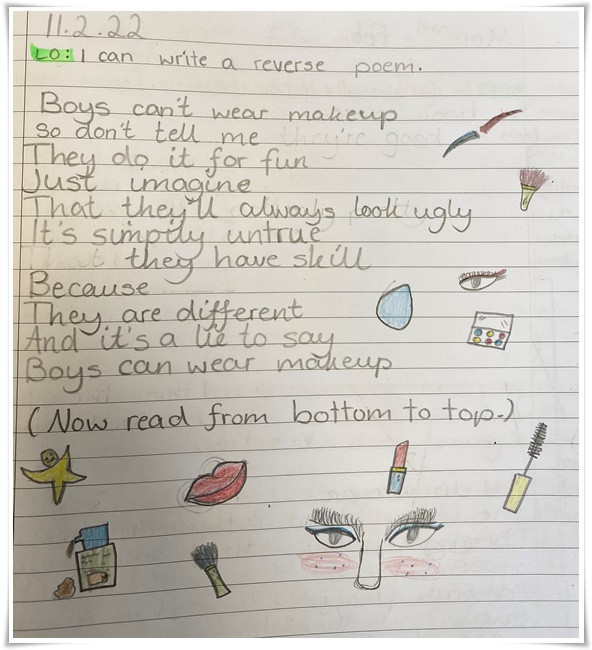 11.2.22
LO: I can write a reverse poem.
Boys can't wear makeup
so don't tell me
They do it for fun
Just imagine
That they'll always look ugly
It's simptly untrue
they have skill
Because
They are different
And it's a lie to say
Boys can wear makeup
(Now read from bottom to top.)